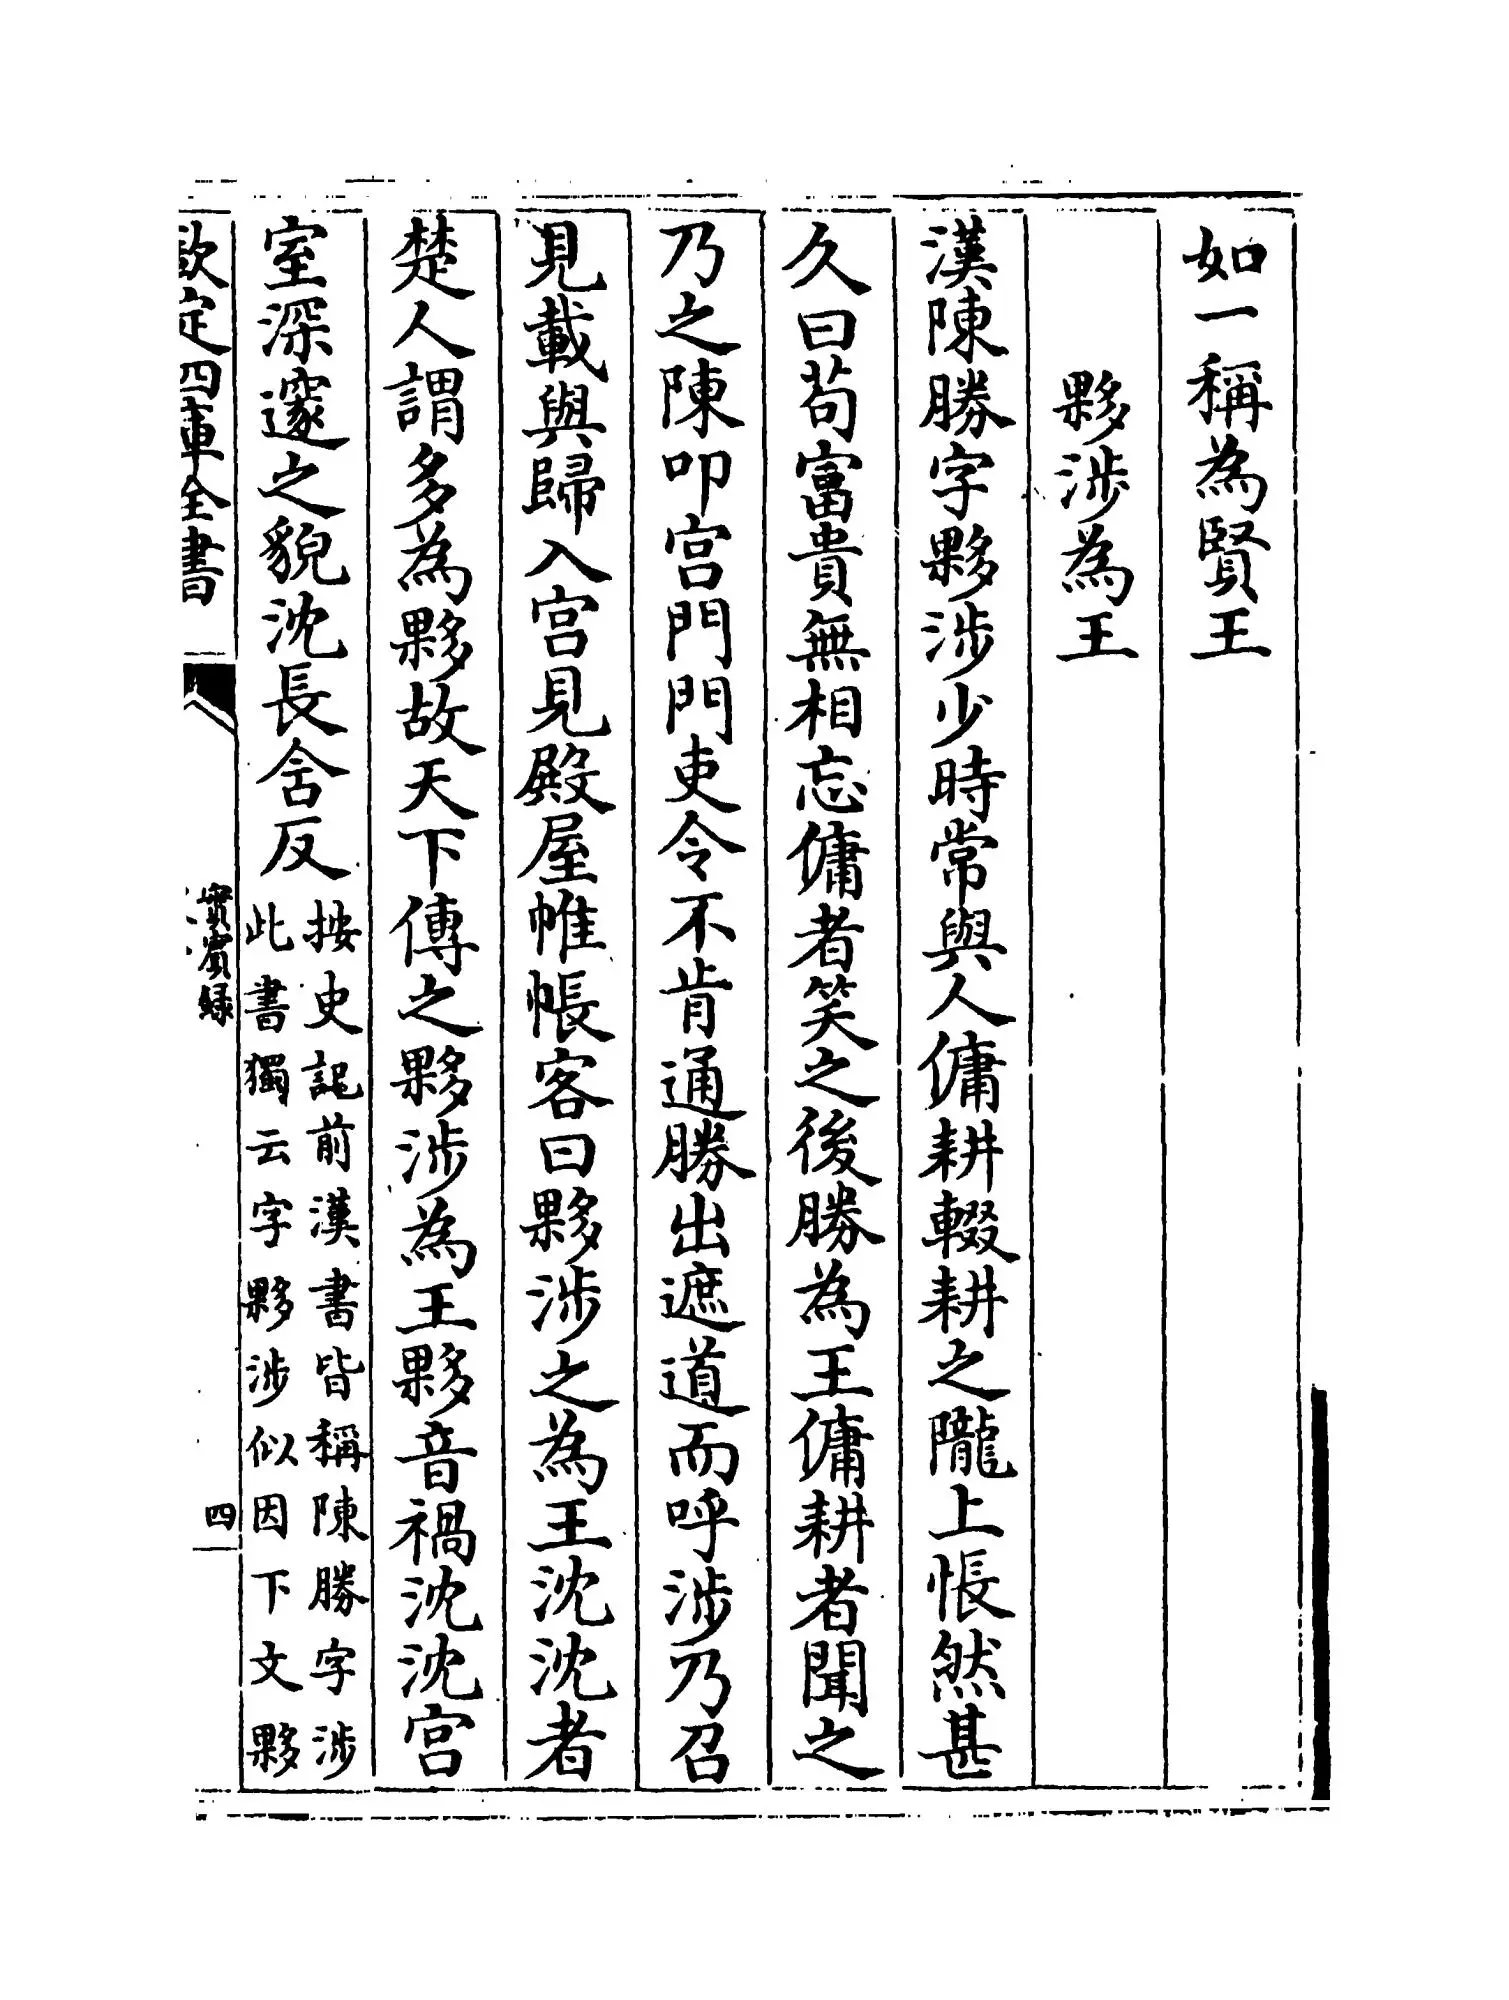 如一稱為賢王
夥涉為王
漢陳勝字夥涉少時常與人傭耕輟耕之隴上悵然甚
久曰茍富貴無相忘傭者笑之後勝為王傭耕者聞之
乃之陳叩宫門門吏令不肯通勝出遮道而呼涉乃召
見載與歸入宫見殿屋帷帳客曰夥涉之為王沈沈者
楚人謂多為夥故天下傳之夥涉為王夥音禍沈沈宫
室深邃之貌沈長含反
按史記前漢書皆稱陳勝字涉
此書獨云字夥涉似因下文夥
欽定四庫全書
實賓録
四